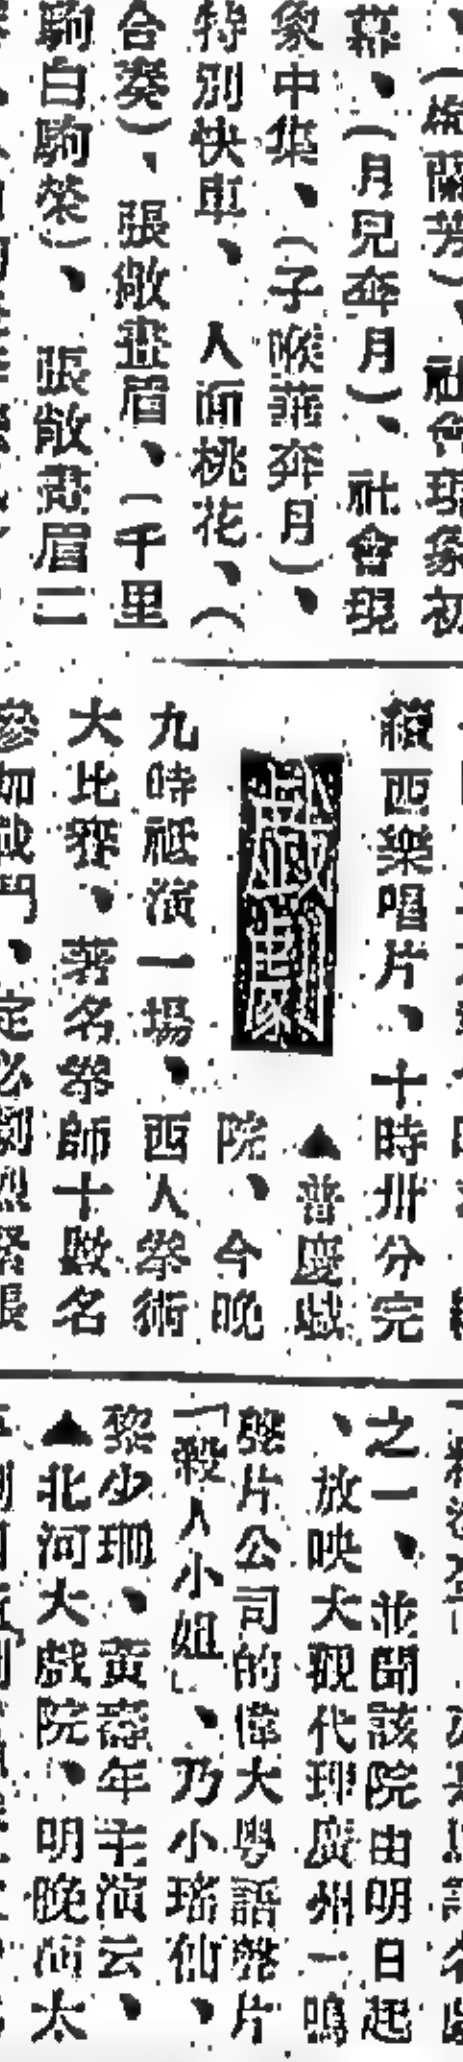 （梅蘭芳）、社會現象初
幕、（月兒奔月）、社會現
象中集、（子喉華奔月）、
特別快車、人面桃花、（
合奏）、張敞畫眉、（千里
駒白駒榮）、張敞畫眉二
續西樂唱片、十時卅分完
戲劇
▲普慶戲
院、今晚
九時祗演一場、西人拳術
大比賽、著名拳師十數名
參加戰鬥、定必劇烈緊張
之一、並聞該院由明日起
、放映大觀代理廣州一鳴
聲片公司的偉大粵語聲片
「殺人小姐」、乃小瑤仙、
黎少珊、黃壽年主演云、
▲北河大戲院、明晚演太